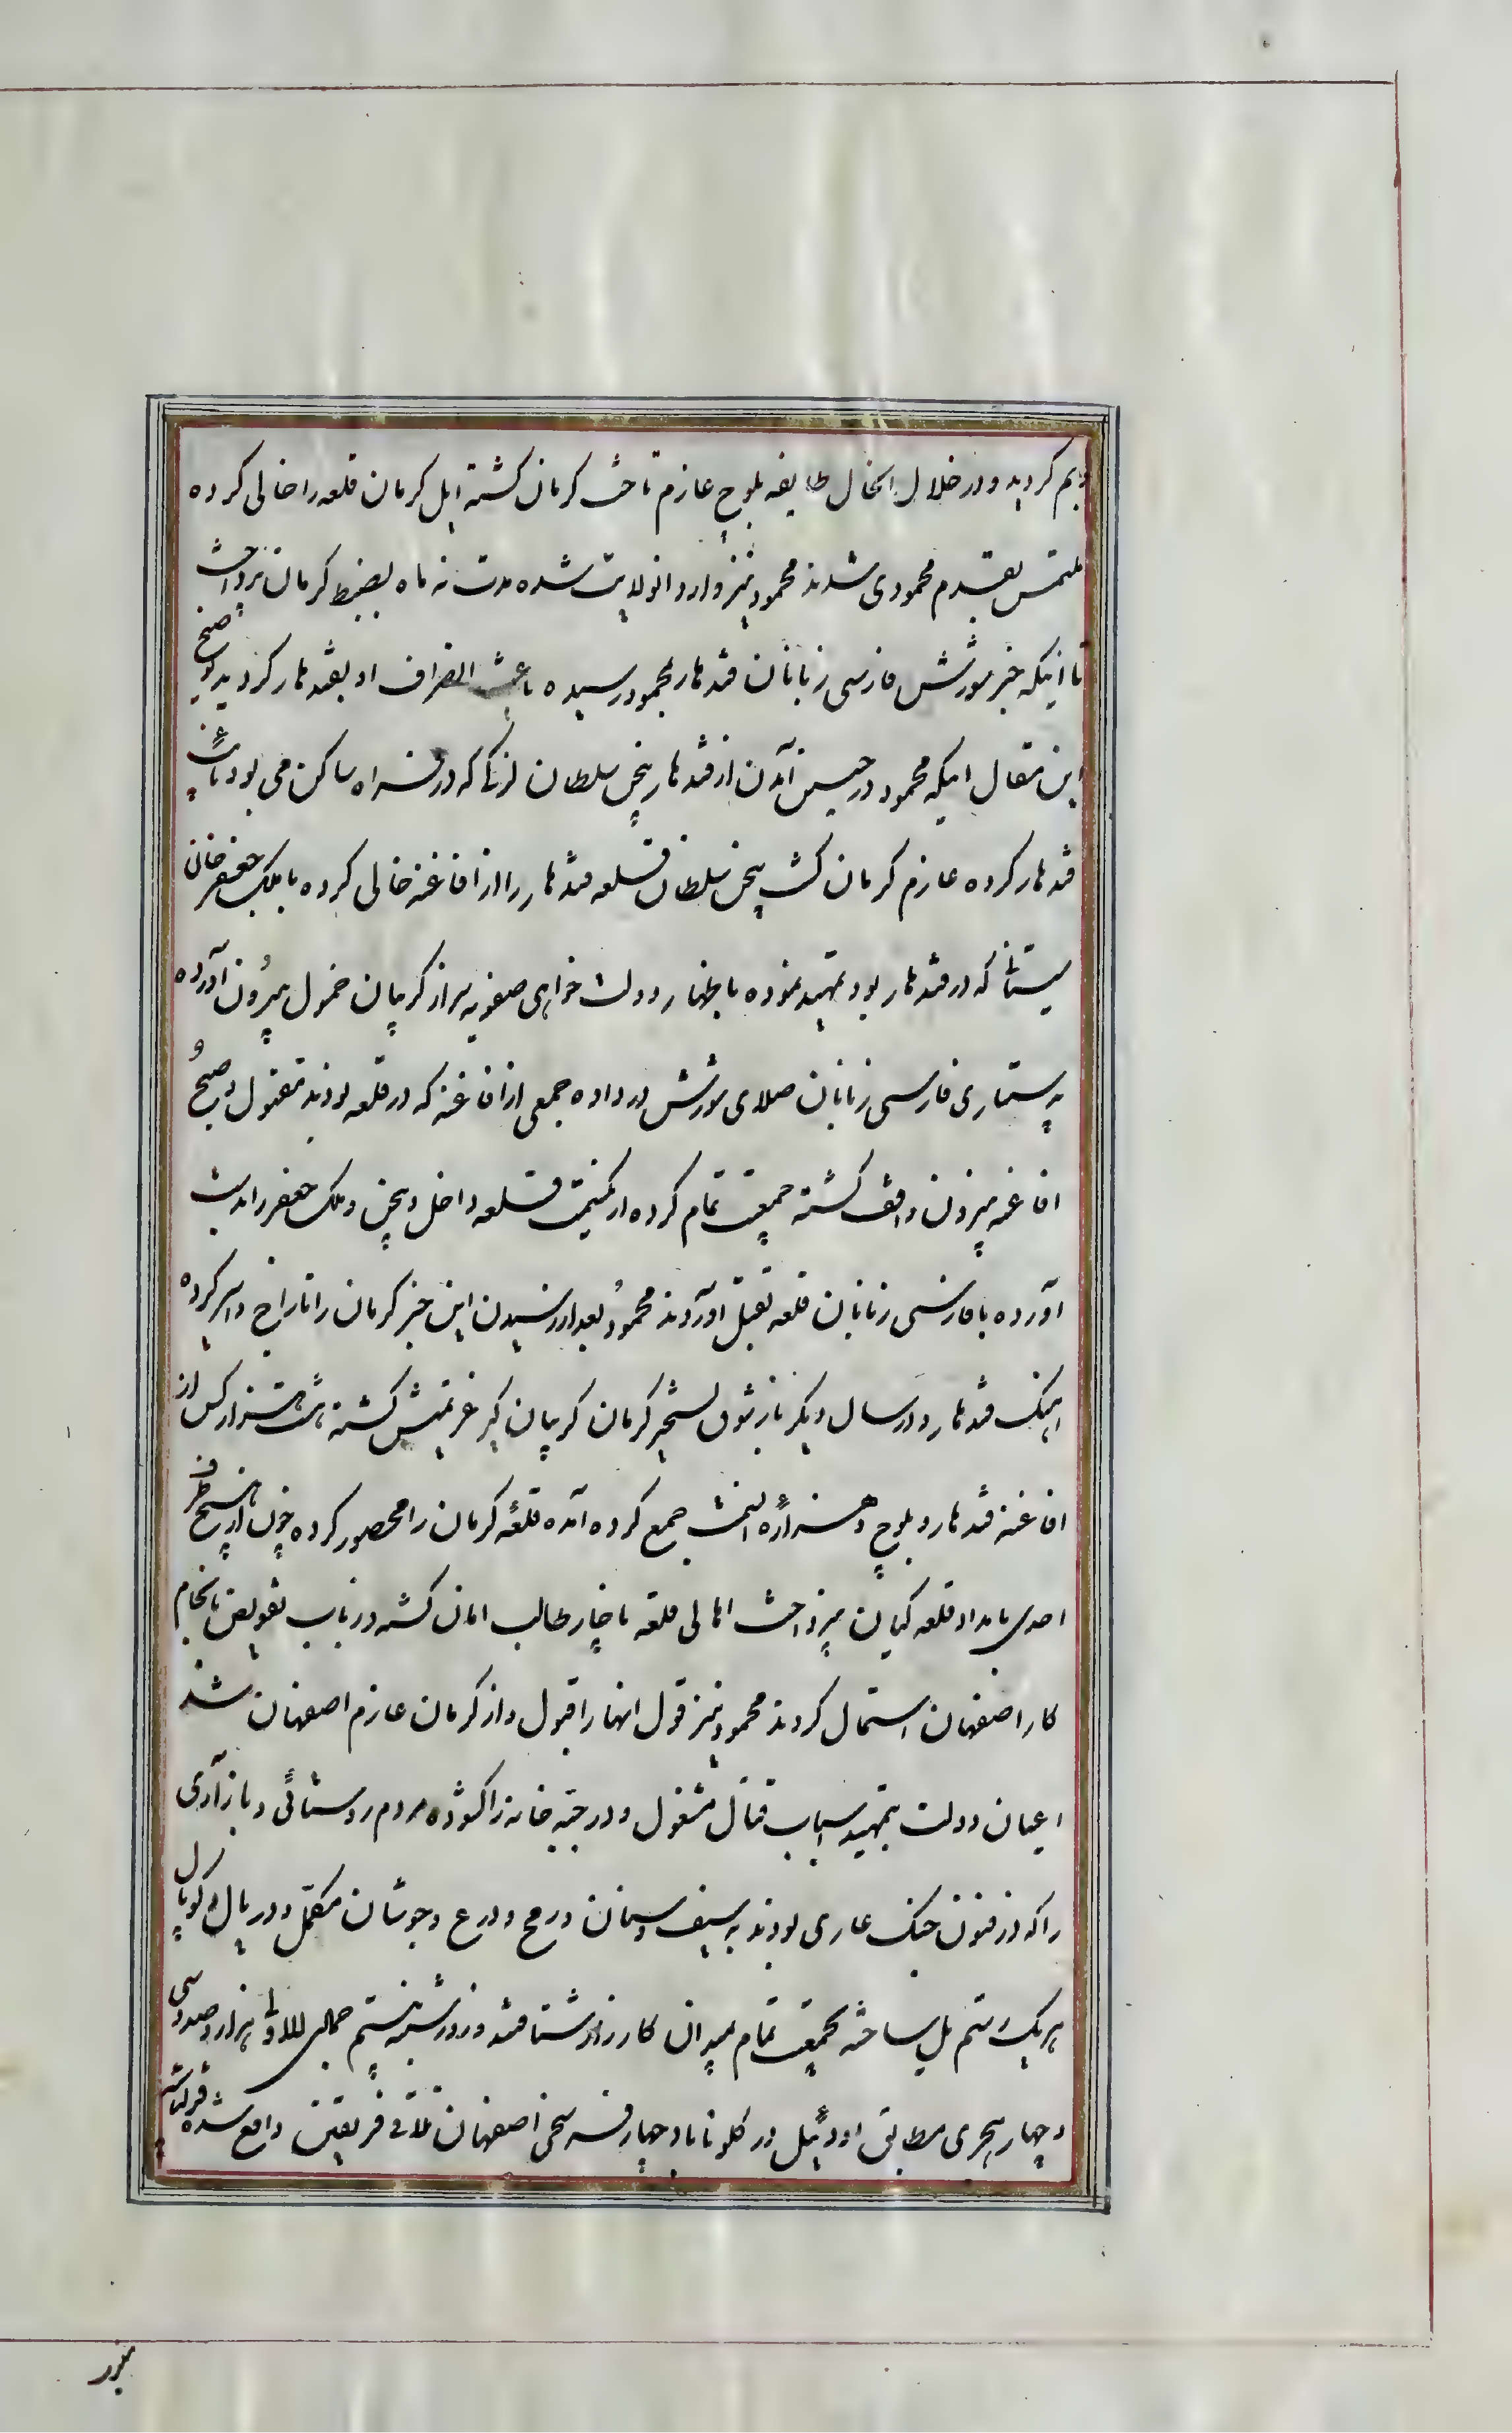 و بم کردید و در خلال اینحال طایفه بلوچ عازم تاخت کرمان کشته اهل کرمان قلعه را خالی کرده
ملتمس بقدوم محمودی شدند محمود نیز وارد انولایت شده مدت نه ماه بضبط کرمان پرداخت
تا اینکه خبر شورش فارسی زبانان قندهار بمحمود رسیده باعث انصراف او بقندهار کردید توضیح
این مقال اینکه محمود در حین آمدن از قندهار بیجن سلطان لزکی که در فراه ساکن می بود نایب
قندهار کرده عازم کرمان کشت بیجن سلطان قلعه قندهار را از افاغنه خالی کرده با ملک جعفر خان
سیستانی که در قندهار بود تمهید نموده باظهار دولت خواهی صفویه سر از کریبان خمول بیرون آورده
به دستیاری فارسی زبانان صلای شورش در داده جمعی از افاغنه که در قلعه بودند مقتول و صبح
افاغنه بیرون واقف کشته جمعیت تمام کرده از کمینت قلعه داخل و بیجن و ملک جعفر را بدست
آورده با فارسی زبانان قلعه بقتل آوردند محمود بعد از رسیدن این خبر کرمان را تاراج و اسیر کرده
اهنک قندهار و در سال دیکر باز شوق تسخیر کرمان کریبان کیر عزیمتش کشته هشت هزار کس از
افاغنه قندهار و بلوچ و هزاره الیت جمع کرده آمده قلعه کرمان را محصور کرده چون از هیچ طرف
احدی بامداد قلعه کیان نپرداخت اهالی قلعه ناچار طالب امان کشته در باب تفویض بانجام
کار اصفهان استمهال کردند محمود نیز قول انها را قبول و از کرمان عازم اصفهان شد
اعیان دولت بتمهید اسباب قتال مشغول و در جبه خانه را کشوده مردم روستائی و بازاری
را که از فنون جنک عاری بودند به سیف و سنان و رمح و درع و جوشان مکمل و در یال و کوپال
هریک رستم یل ساخته بجمعیت تمام بمیدان کارزار شتافتند و روز شنبه بیستم جمادی الاولی هزار و صد و سی
و چهار هجری مطابق اودئیل در کلوناباد چهار فرسخی اصفهان تلاقی فریقین واقع شده قزلباشیه